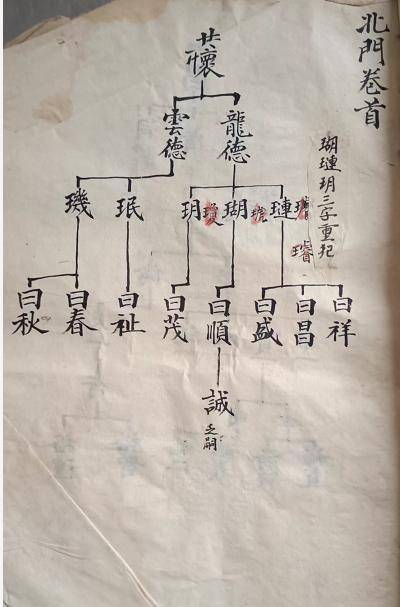 北門卷首
瑚璉玥三字重犯
璿
共懷
龍德
雲德
璉
瑚
玥 瓊
珉
璣
曰祥
曰昌
曰盛
曰順
曰茂
曰祉
曰春
曰秋
誠
乏嗣